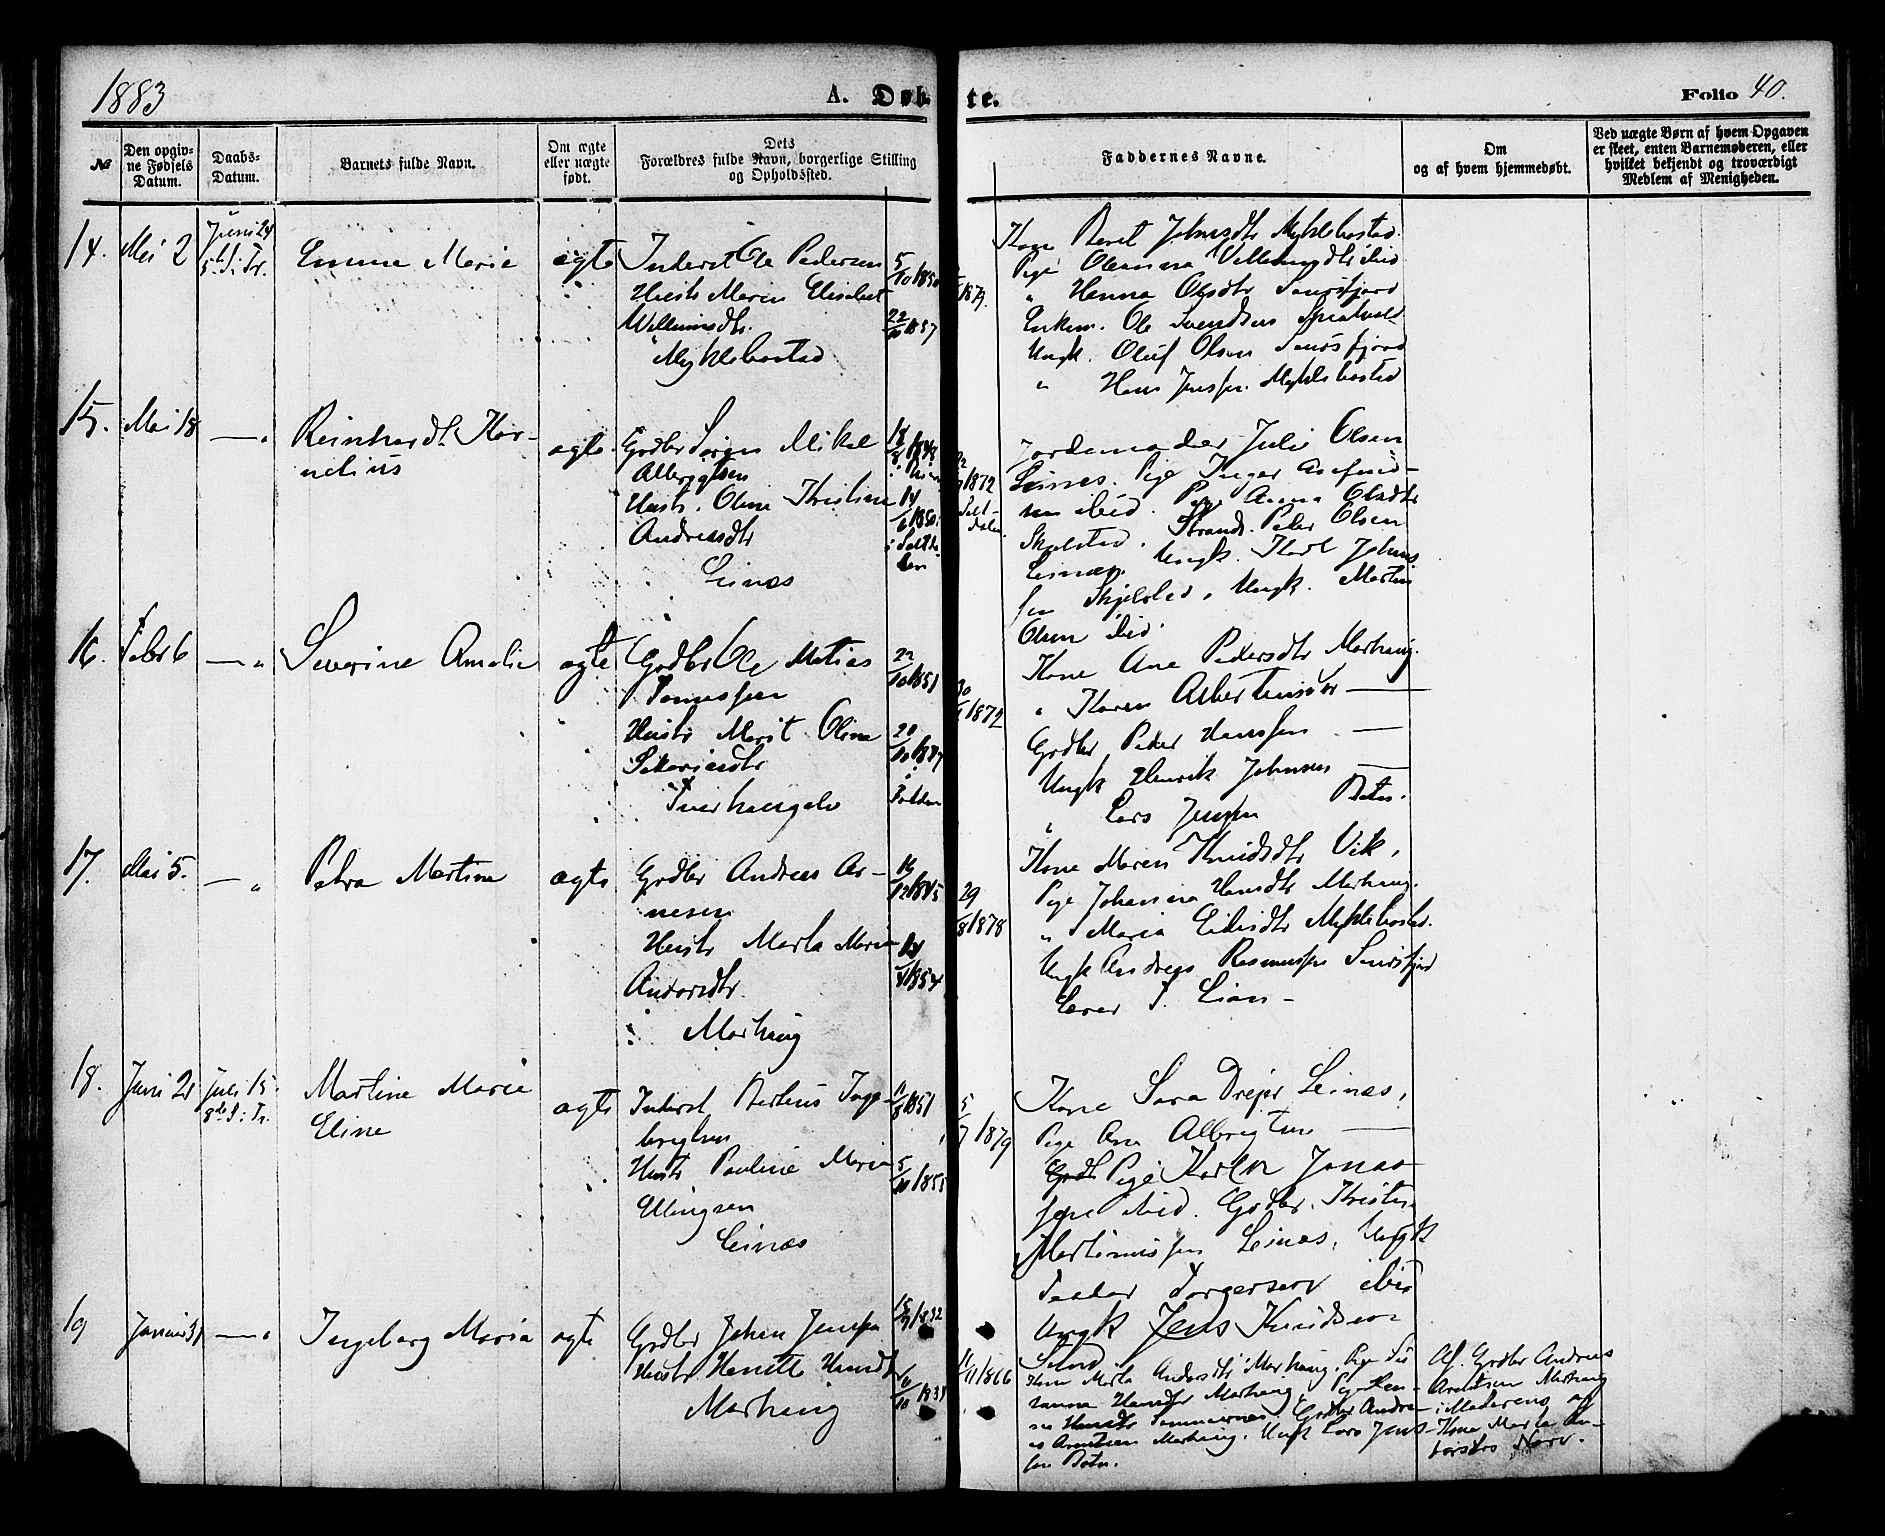 1883
A. Døb
te.
Folio 40.
№
Den opgiv-
ne Fødsels
Datum.
Daabs-
Datum.
Barnets fulde Navn.
Om ægte
eller uægte
født.
Dets
Forældres fulde Navn, borgerlige Stilling
og Opholdssted.
Faddernes Navne.
Om
og af hvem hjemmedøbt.
Ved uægte Børn af hvem Opgaven
er skeet, enten Barnemoderen, eller
hvilket bekjendt og troværdigt
Medlem af Menigheden.
14. Mai 2
Juni 24
5. S. i. Tr.
Emma Marie
ægte
Inderst Ole Pedersen
Hustr Maren Elisabet
Willumsdtr.
Myklebostad
5/10 1850
22/10 1857
1879.
Kone Beret Johnsdtr Myklebostad.
Pige Oleanna Villumsdtr ibid
" Hanna Olsdtr Sørfjord
Enkem. Ole Svendsen
Ungk. Oluf Olsen
" Hans Jenssen Myklebostad
15. Mai 18 — "
Reinhardt Kor-
nelius
ægte
Grdbr Søren Mikal
Albrigtsen
Hustr. Oline Kristine
Andreasdtr
Leines
14/6 1850
1872
Jordemoder Julie Olsen
Leines. Pige Inger
ibid. Pige Anna Olsdtr
Skjelstad. Strands. Peder Olsen
Leines. Ungk. Karl Johns
sen Skjelstad, Ungk. Martin
Olsen ibid.
16. Febr 6 — "
Severine Amalie
ægte
Grdbr Ole Matias
Tomassen
Hustr Marit Oline
Sakariasdtr
Tverhaugalv
22/10 1851
20/10 1847
i
Folden
1872
Kone Ane Pedersdtr Marhaug.
" Karen Albertinsdtr —
Grdbr Peder Hanssen —
Ungk Henrik Johnsen —
" Lars Jenssen Botn.
17. Mai 5. — "
Petra Martine
ægte
Grdbr Andreas Ar-
nesen
Hustr Marta Maria
Andorsdtr.
Marhaug
16/12 1845
1854
29/8 1878
Kone Maren Knudsdtr Vik,
Pige Johanna Hansdtr Marhaug.
" Maria Eilisdtr Myklebostad.
Ungk Andreas Rasmussen
18. Juni 21
Juli 15
8de S. i. Tr.
Martine Marie
Eline
ægte
Inderst Berteus Inge-
brigtsen
Hustr Pauline Maria
Ellingsen
Leines
1851
5/10 1855
5/7 1879
Kone Sara Drejer Leines,
Pige Ane Albrigtsen —
Pige Karen Jonas-
sen ibid. Grdbr. Kristen
Martinussen Leines, Ungk
Torgersen ibid
Ungk Jens Knudsen
19 Januar 31 — "
Ingeborg Maria
ægte
Grdbr Johan Jenssen
Hustr Hansdtr
Marhaug
15/9 1832
11/11 1866
Kone Marta Andorsdtr Marhaug. Pige Su-
sanna Hansdtr Marhaug, Pige Han-
na Hansdtr Grdbr Andre-
as Arentsen Marhaug. Ungk Lars Jens-
sen Botn.
Af. Grdbr Andreas
Arentsen Marhaug
og
Kone Marta An-
dorsdtr